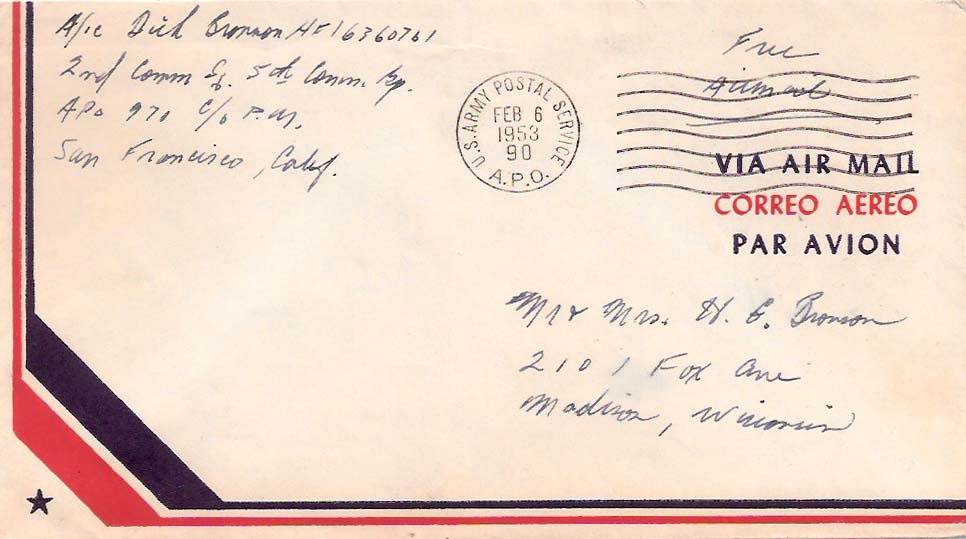 A/1c Dick Bronson AF16360761
2nd Comm Sq. 5th Comm. Gp.
APO 970 c/o P.M.
San Francisco, Calif.
U.S. ARMY POSTAL SERVICE
FEB 6
1953
90
A.P.O.
Free
Airmail
VIA AIR MAIL
CORREO AEREO
PAR AVION
Mr & Mrs. H. E. Bronson
2101 Fox Ave
Madison, Wisconsin